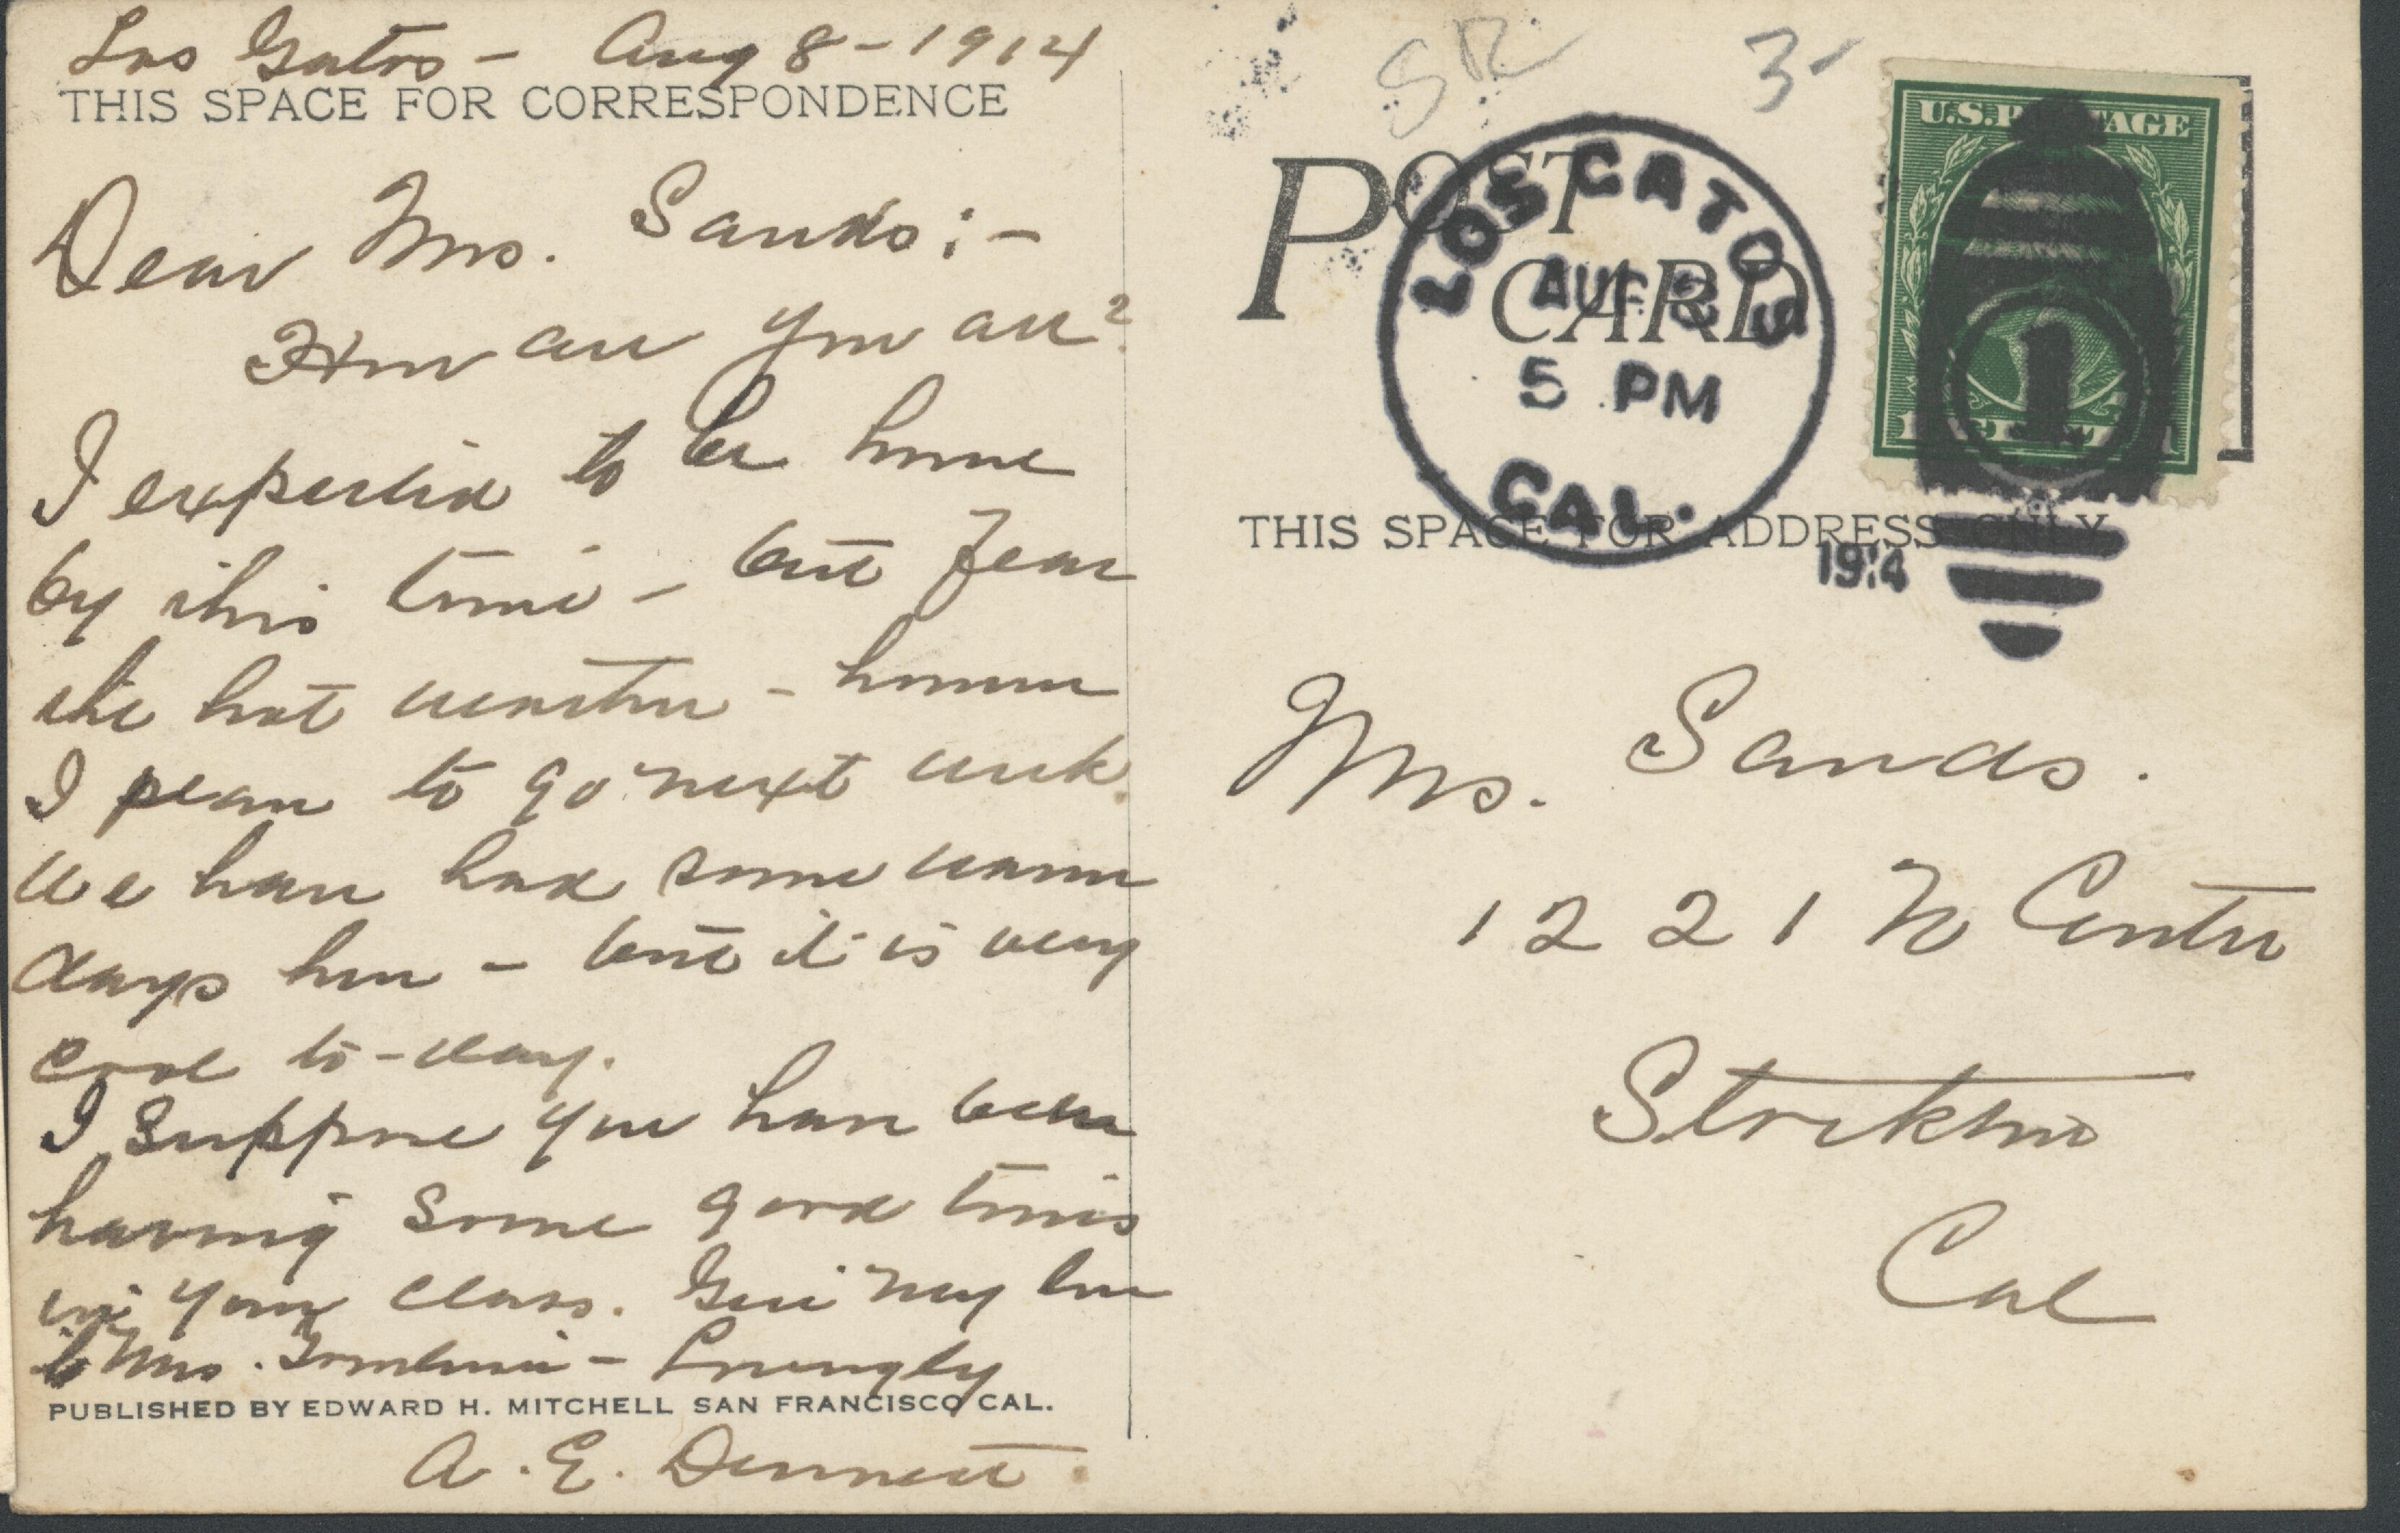 Los Gatos - Aug 8 - 1914
THIS SPACE FOR CORRESPONDENCE
Dear Mrs. Sands:-
How are you all?
I expected to be home
by this time - but fear
the hot weather - however
I plan to go next week.
We have had some warm
days here - but it is very
cool to-day.
I suppose you have been
having some good times
in your class. Give my love
to Mrs. - Lovingly
PUBLISHED BY EDWARD H. MITCHELL SAN FRANCISCO CAL.
A. E. Dennett
SR 3-
POST CARD
LOS GATOS
AUG 8
5 PM
CAL.
1914
U.S. POSTAGE
1
THIS SPACE FOR ADDRESS ONLY
Mrs. Sands.
1221 No Center
Stockton
Cal